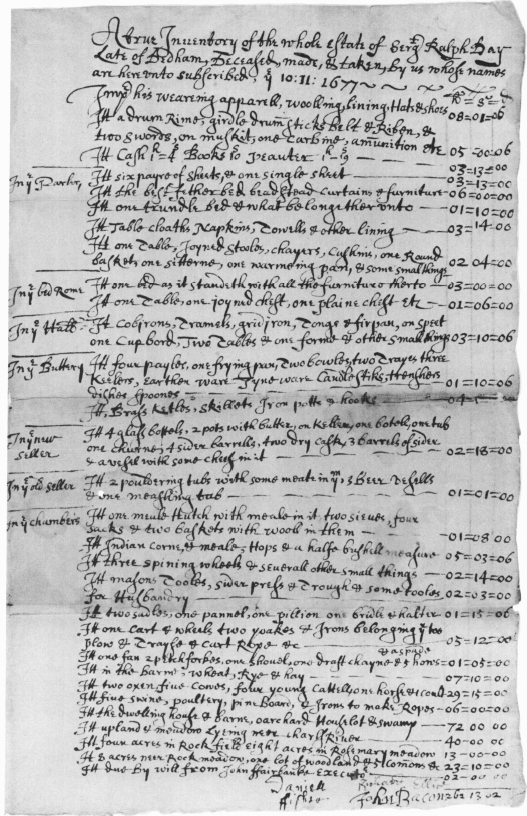 A true Inventory of the whole estate of Sergt Ralph Day
Late of Dedham, Deceased, made, & taken, by us whose names
are hereunto subscribed, ye 10: 11: 1677
his wearing apparell, woolling, lining, Hats & shoes 08=01=06
It a drum Rime, girdle drum sticks belt & Riben, &
two swords, on muskit, one Carbine, amunition etc 05=00=06
It Cash Books Peauter
It six payre of sheets, & one single sheet 03=13=00
In ye Parler, It the best fether bed beadstead Curtains & furniture 06=00=00
It one trundle bed & what belongeth er unto 01=10=00
It Table cloaths Napkins, Towells & other lining 03=14=00
It one Table, Joyned Stooles, chayers, Cushins, one Round
basket, one sitterne, one warmeing pan, & some small things 02 04=00
In ye bed Rome It one bed as it standeth with all the furniture therto 03=00=00
It one Table, one joyned chest, one plaine chest etc 01=06=00
In ye Hall It Cobirons, Tramels, gridiron, Tongs & firpan, on speet
one Cupbord, Two Tables & one forme & other small things 03=10=06
In ye Buttery It four payles, one frying pan, Two bowles, two Trayes three
Keelers, Earthen ware Tyne ware Candlestiks, trenshers
dishes Spoones 01=10=06
It Brass Ketles, Skellets Iron potts & hooks
In ye new seller It 4 glass bottels, 2 pots with butter, on Keller, one botel, one tub
one Churne, 4 sider barrells, two dry cask, 3 barrels of sider
& a vesel with some chees in it 02=18=00
In ye old seller It 2 pouldering tubs with some meate in ym, 3 Beer
& one meashing tub 01=01=00
In ye chambers It one meale Hutch with meale in it, two sieves, four
sacks & two baskets with wooll in them 01=08 00
It Indian corne, & meale, Hops & a halfe bushill measure 05=03=06
It three spining wheels & severall other small things 02=14=00
It masons Tooles, sider press & Trough & some tooles
for Husbandry 02=03=00
It two sadles, one pannel, one pilion one bridle & halter 01=15=00
It one Cart & wheels two yoakes & Irons belonging
plow & Trayse & Cart Rope &c 05=12=00
& a spade
It one fan 2 pitchforkes, one shovel, one draft chayne & 3 hows 01=05=00
It in the Barne, wheat, Rye & hay 07=10=00
It two oxen five Cowes, four young Cattell, one horse & coult 29=15=00
It five swine, poultery, pine Board, & Irons to make Ropes 06=00=00
It the dwelling house & Barne, oarchard Houselot & swamp 72 00 00
It upland & meadow Lyeing neer Charls River 40=00 00
It four acres in Rock field Eight acres in Rosemary meadow 13=00=00
It 8 acres neer Rock meadow, one lot of woodland & 5 Comons & 23=10=00
It due By will from John ffairbanke Executo 02=00=00
Daniell
ffisher
John Bacon 262 13 02